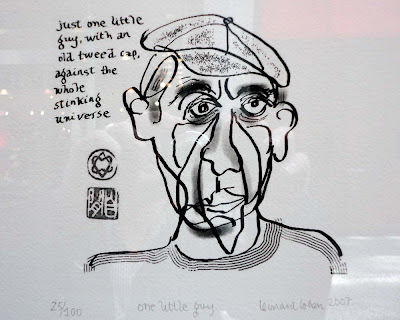 just one little
guy, with an
old tweed cap,
against the
whole
stinking
universe
25/100 one little guy Leonard Cohen 2007